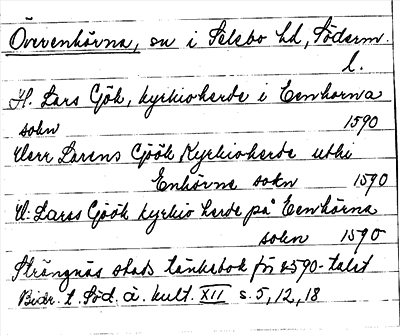 Överenhörna, sn i Selebo hd, Söderm.
l.
H. Lars Gjök, kyrkioherde i Eenhorna
sokn 1590
Herr Larens Gjöök Kyrkioherde uthi
Enhörne sokn 1590
H. Larss Gjöök kyrkio herde på Eenhörna
sokn 1590
Strängnäs stads tänkebok för 1590-talet
Bidr. t. Söd. ä. kult. XII s. 5, 12, 18